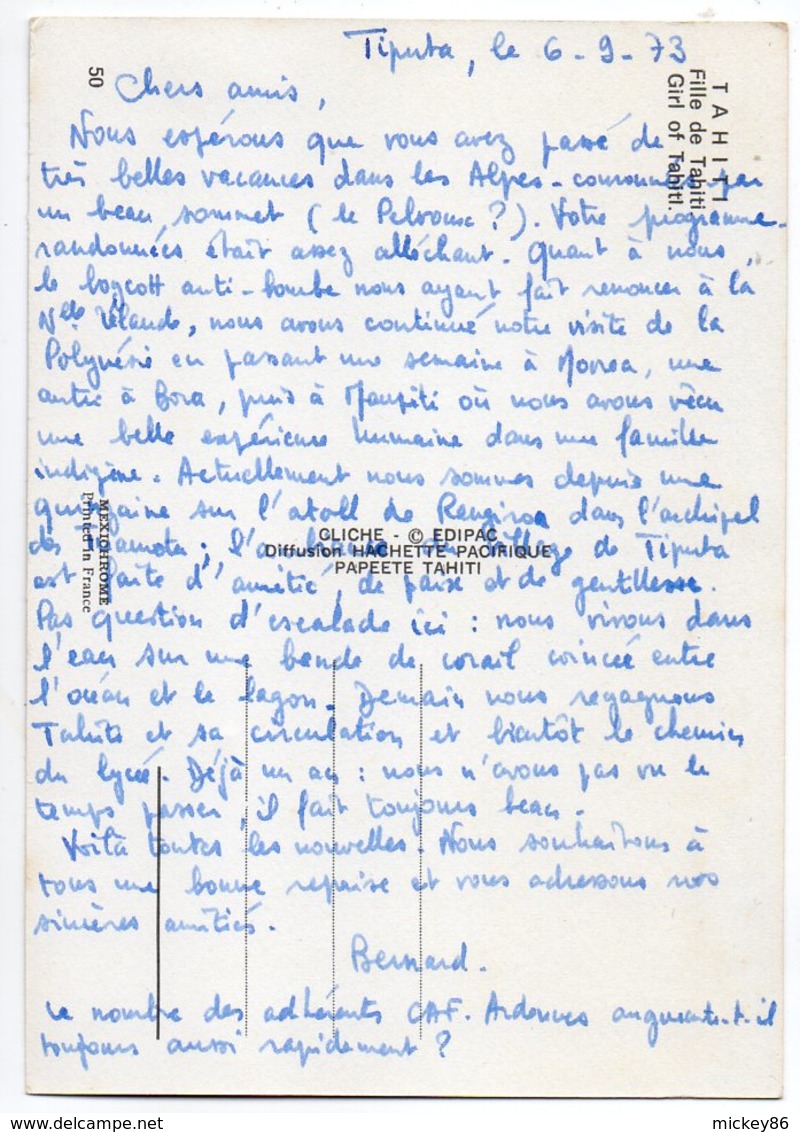 Tiputa, le 6-9-73
Chers amis,
Nous espérons que vous avez passé de
très belles vacances dans les Alpes - couronnées par
un beau sommet (le Pelvoux ?). Votre programme-
randonnées était assez alléchant. Quant à nous,
le boycott anti-bombe nous ayant fait renoncer à la
Nlle Zélande, nous avons continué notre visite de la
Polynésie en passant une semaine à Moorea, une
autre à Bora, puis à Maupiti où nous avons vécu
une belle expérience humaine dans une famille
indigène. Actuellement nous sommes depuis une
quinzaine sur l'atoll de Rangiroa dans l'archipel
des Tuamotu ; de Tiputa
est faite d'amitié, de paix et de gentillesse.
Pas question d'escalade ici : nous vivons dans
l'eau sur une bande de corail coincée entre
l'océan et le lagon. Demain nous regagnons
Tahiti et sa circulation et bientôt le chemin
du lycée. Déjà un an : nous n'avons pas vu le
temps passer, il fait toujours beau.
Voilà toutes les nouvelles. Nous souhaitons à
tous une bonne reprise et vous adressons nos
sincères amitiés.
Bernard.
Le nombre des adhérents CAF. Ardennes augmente-t-il
toujours aussi rapidement ?
TAHITI
Fille de Tahiti
Girl of Tahiti
50
MEXICHROME
Printed in France
CLICHE - © EDIPAC
Diffusion HACHETTE PACIFIQUE
PAPEETE TAHITI
mickey86